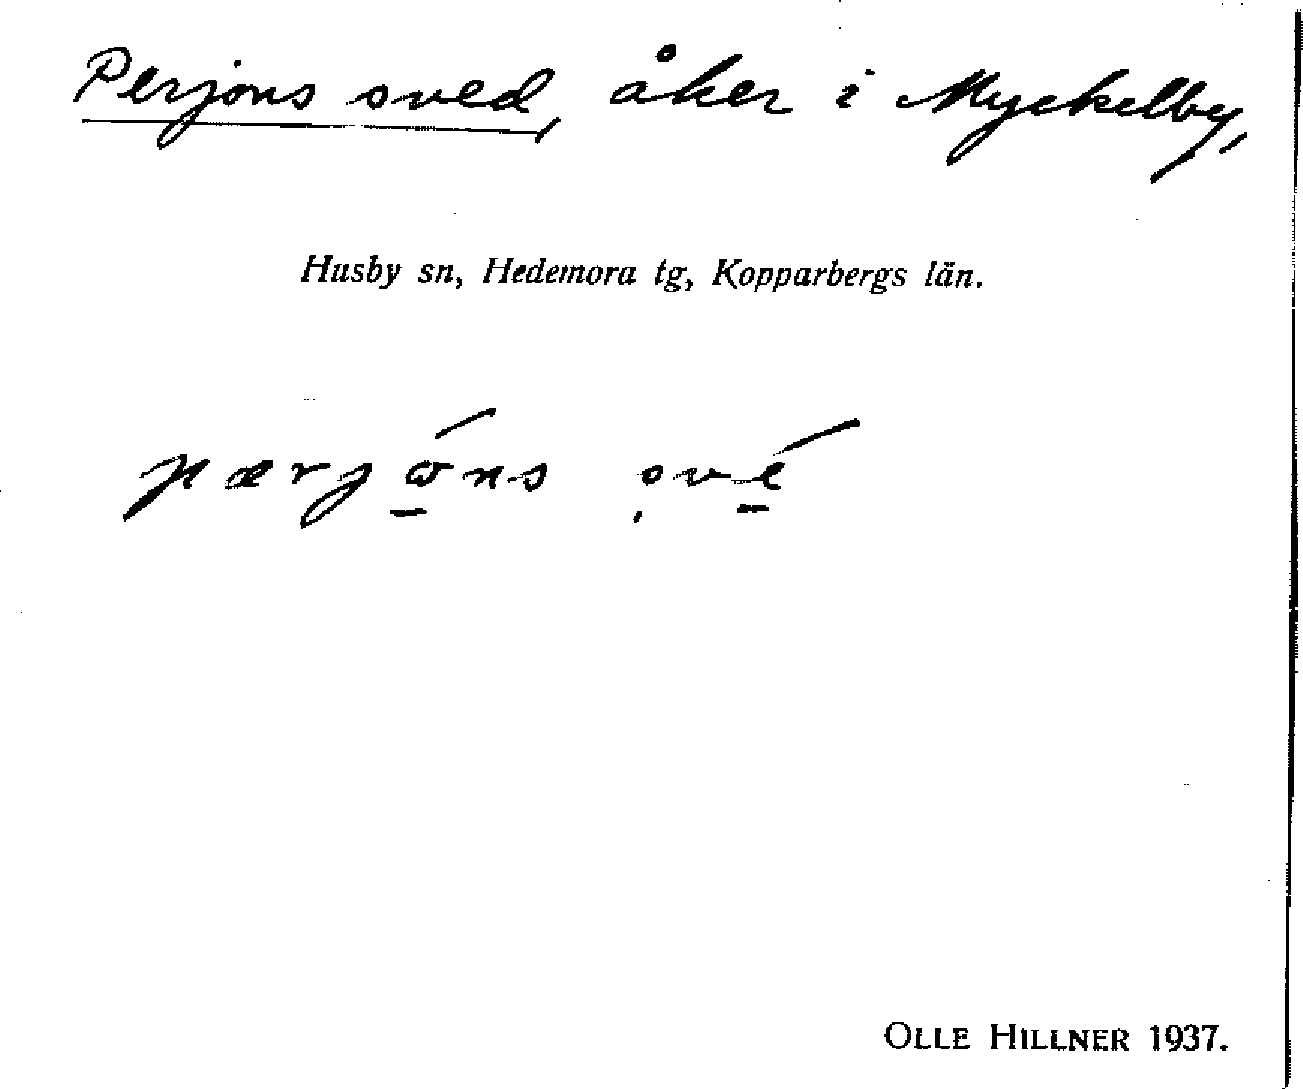 Perjons sved, åker i Myckelby,
Husby sn, Hedemora tg, Kopparbergs län.
pærjo̲̅́ns ˌsvé̲
OLLE HILLNER 1937.